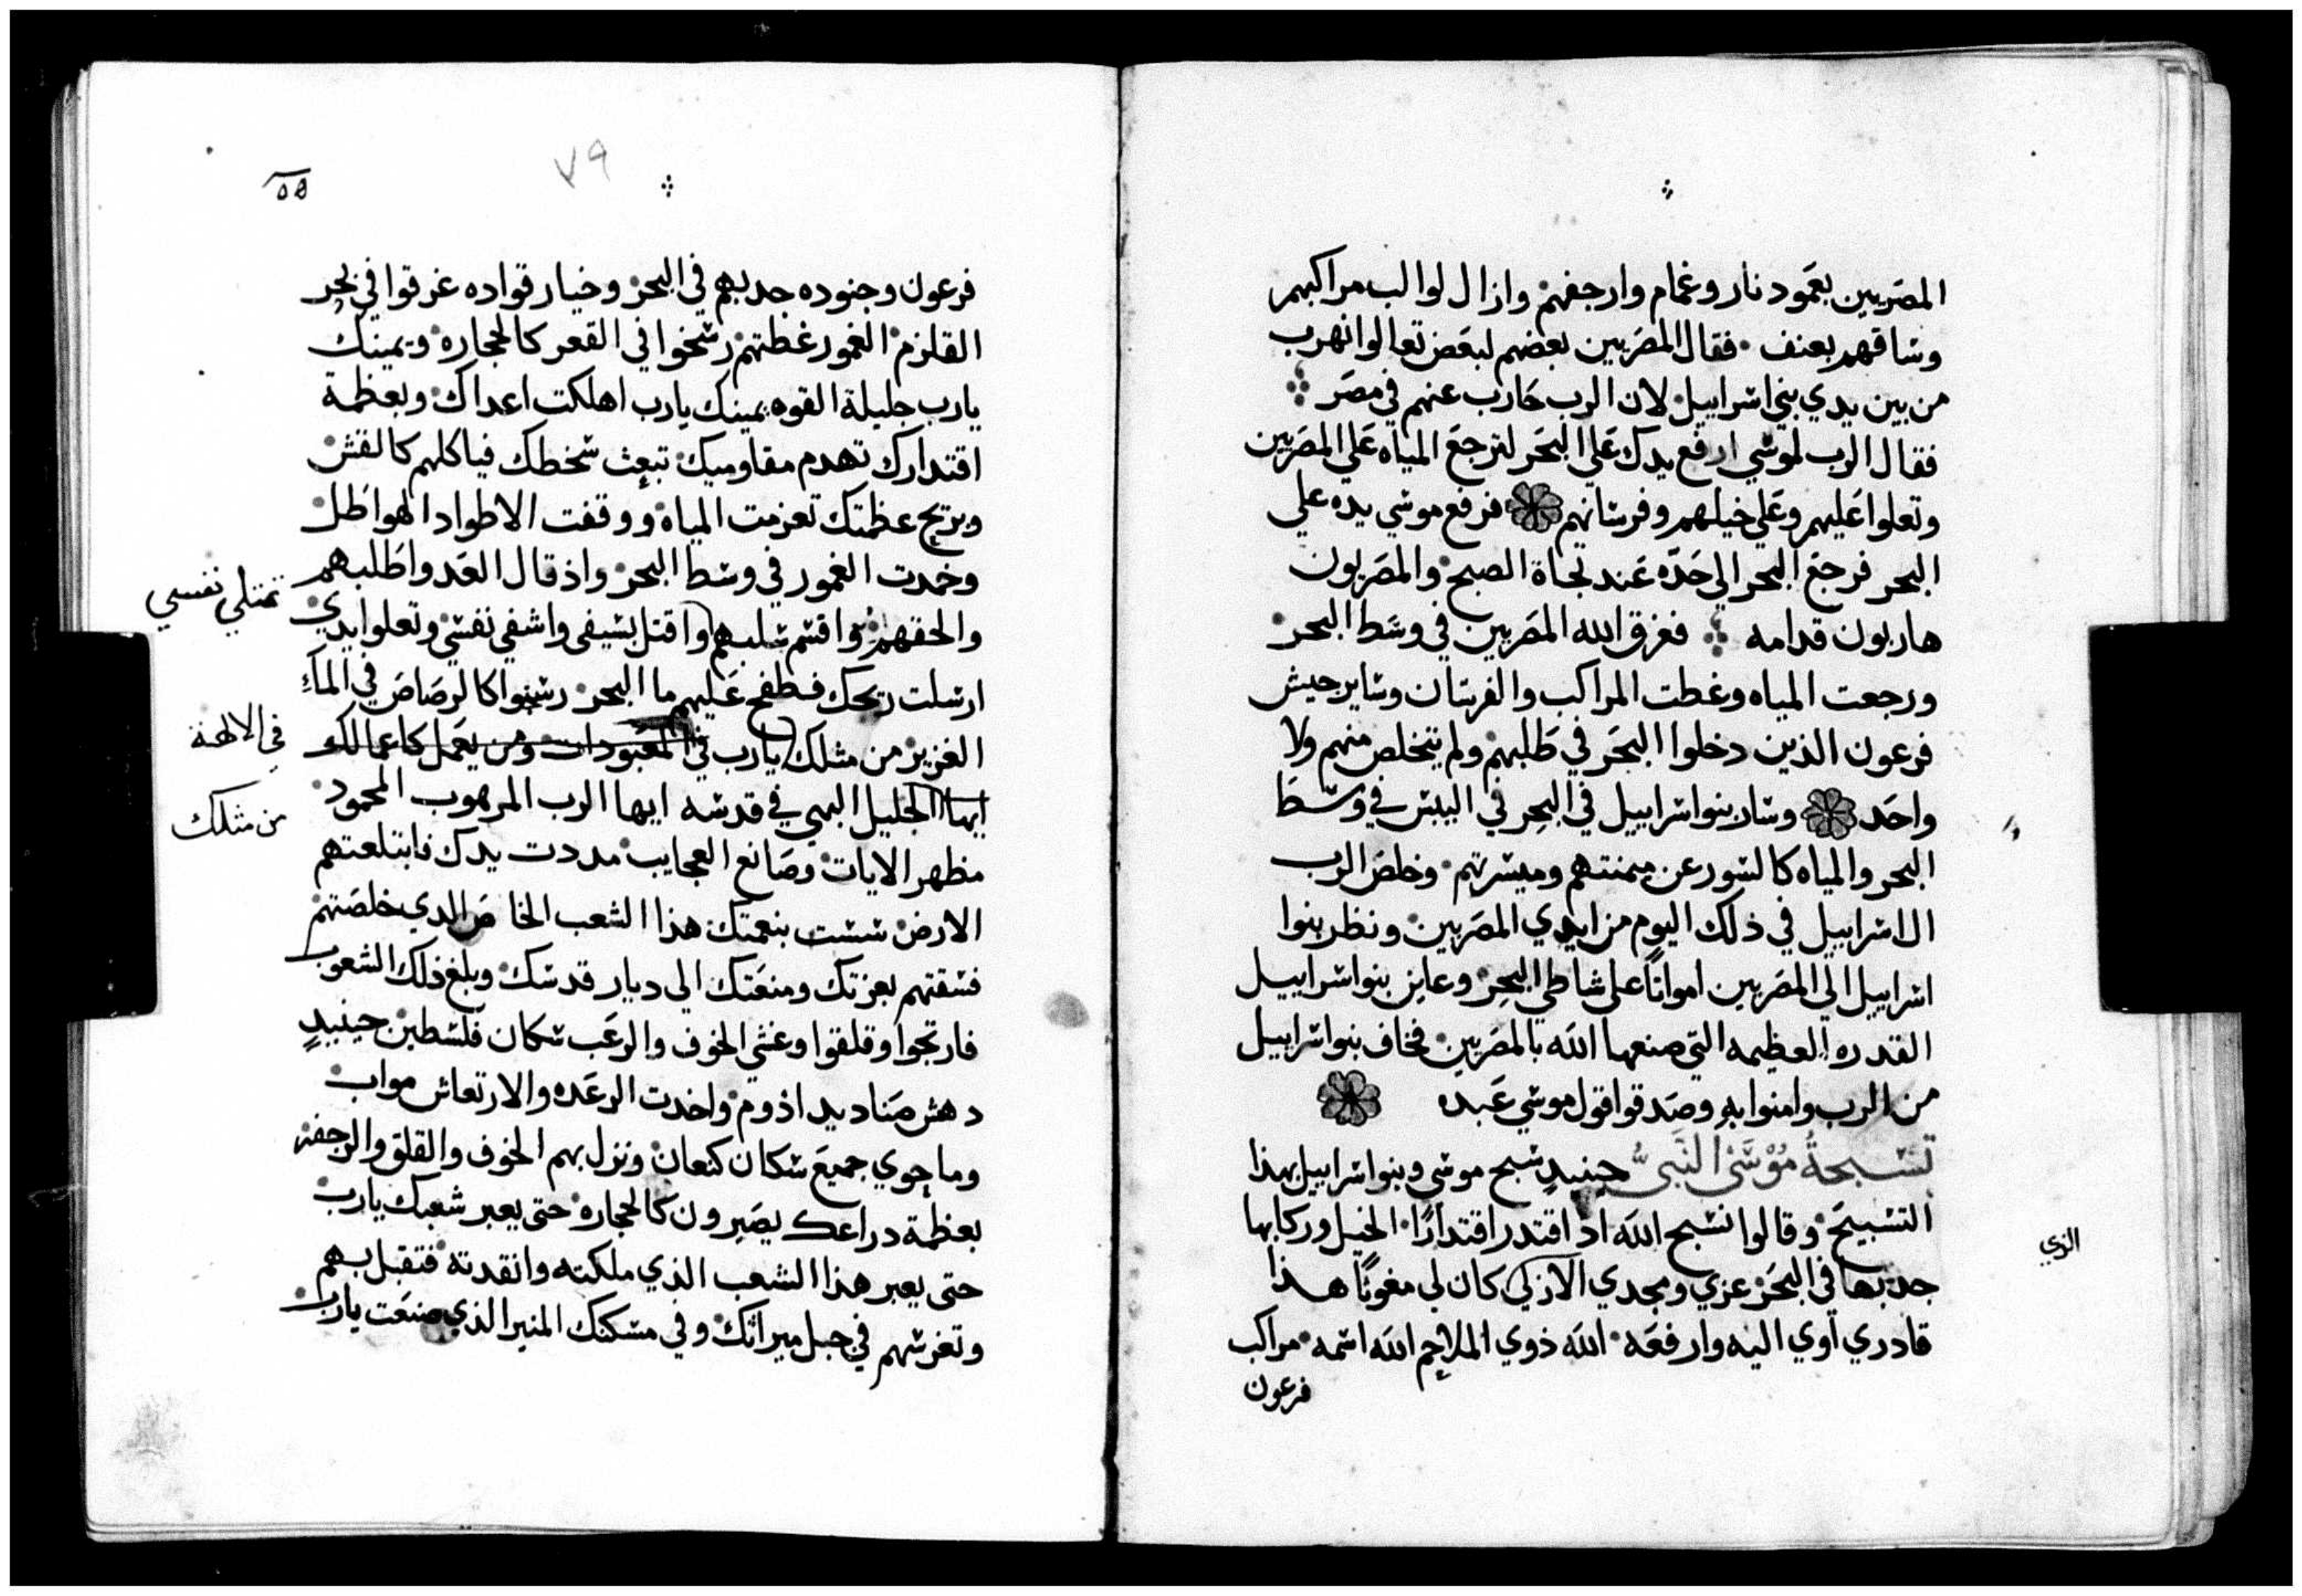 المصريين بعمود نار وغمام وارجفهم وازال لوالب مراكبهم
وساقهم بعنف فقال المصريين بعضهم لبعض تعالوا نهرب
من بين يدي بني اسراييل لان الرب حارب عنهم في مصر
فقال الرب لموسي ارفع يدك علي البحر لترجع المياه علي المصريين
وتعلوا عليهم وعلي خيلهم وفرسانهم فرفع موسي يده علي
البحر فرجع البحر الي حده عند تجاة الصبح والمصريون
هاربون قدامه فغرق الله المصريين في وسط البحر
ورجعت المياه وغطت المراكب والفرسان وساير جيش
فرعون الذين دخلوا البحر في طلبهم ولم يتخلص منهم ولا
واحد وسار بنوا سراييل في البحر في اليبس في وسط
البحر والمياه كالسور عن ميمنتهم وميسرتهم وخلص الرب
ال اسراييل في ذلك اليوم من ايدي المصريين ونظر بنوا
اسراييل الي المصريين امواتًا علي شاطي البحر وعاين بنوا سراييل
القدره العظيمه التي صنعها الله بالمصريين فخاف بنوا سراييل
من الرب وامنوا به وصدقوا قول موسي عبده
تسبحة موسى النبي حينيدٍ سبح موسي وبنوا سراييل بهذا
التسبيح وقالوا نسبح الله اذ اقتدر اقتدارًا الخيل وركابها
جذبها في البحر عزي ومجدي الازلي كان لي مغوثًا هذا
قادري اوي اليه وارفعه الله ذوي الملاحم الله اسمه مراكب
فرعون
الزي
٧٩
فرعون وجنوده جدبهم في البحر وخيار قواده غرقوا في بحر
القلزم الغمور غطتهم رسخوا في القعر كالحجاره ويمينك
يارب جليلة القوه يمينك يارب اهلكت اعداك وبعظمة
اقتدارك تهدم مقاوميك تبعث سخطك فياكلهم كالقش
وبريح عظمتك تعزمت المياه ووقفت الاطواد الهواطل
وخمدت الغمور في وسط البحر واذ قال العدوا طلبهم
والحقهم واقسم سلبهم واقتل بسيفي واشفي نفسي وتعلوا يدي
تمتلي نفسي
ارسلت ريحك فطفح عليهم ما البحر رسبوا كالرصاص في الماء
العزيز من مثلك يارب في المعبودات ومن يعمل كاعمالك
في الالهة
ايها الجليل البهي في قدسه ايها الرب المرهوب المحمود
من مثلك
مظهر الايات وصانع العجايب مددت يدك فابتلعتهم
الارض سست بنعمتك هذا الشعب الخاص الدي خلصتهم
فسقتهم بعزتك ومنعتك الي ديار قدسك وبلغ ذلك الشعوب
فارتجوا وقلقوا وغشي الخوف والرعب سكان فلسطين حينيدٍ
دهش صناديد اذوم واخدت الرعده والارتعاش مواب
وماجوي جميع سكان كنعان ونزل بهم الخوف والقلق والرجفة
بعظمة دراعك يصيرون كالحجاره حتي يعبر شعبك يارب
حتي يعبر هذا الشعب الذي ملكته وانقدته فتقبل بهم
وتغرسهم في جبل ميراثك وفي مسكنك المنير الذي صنعت يارب